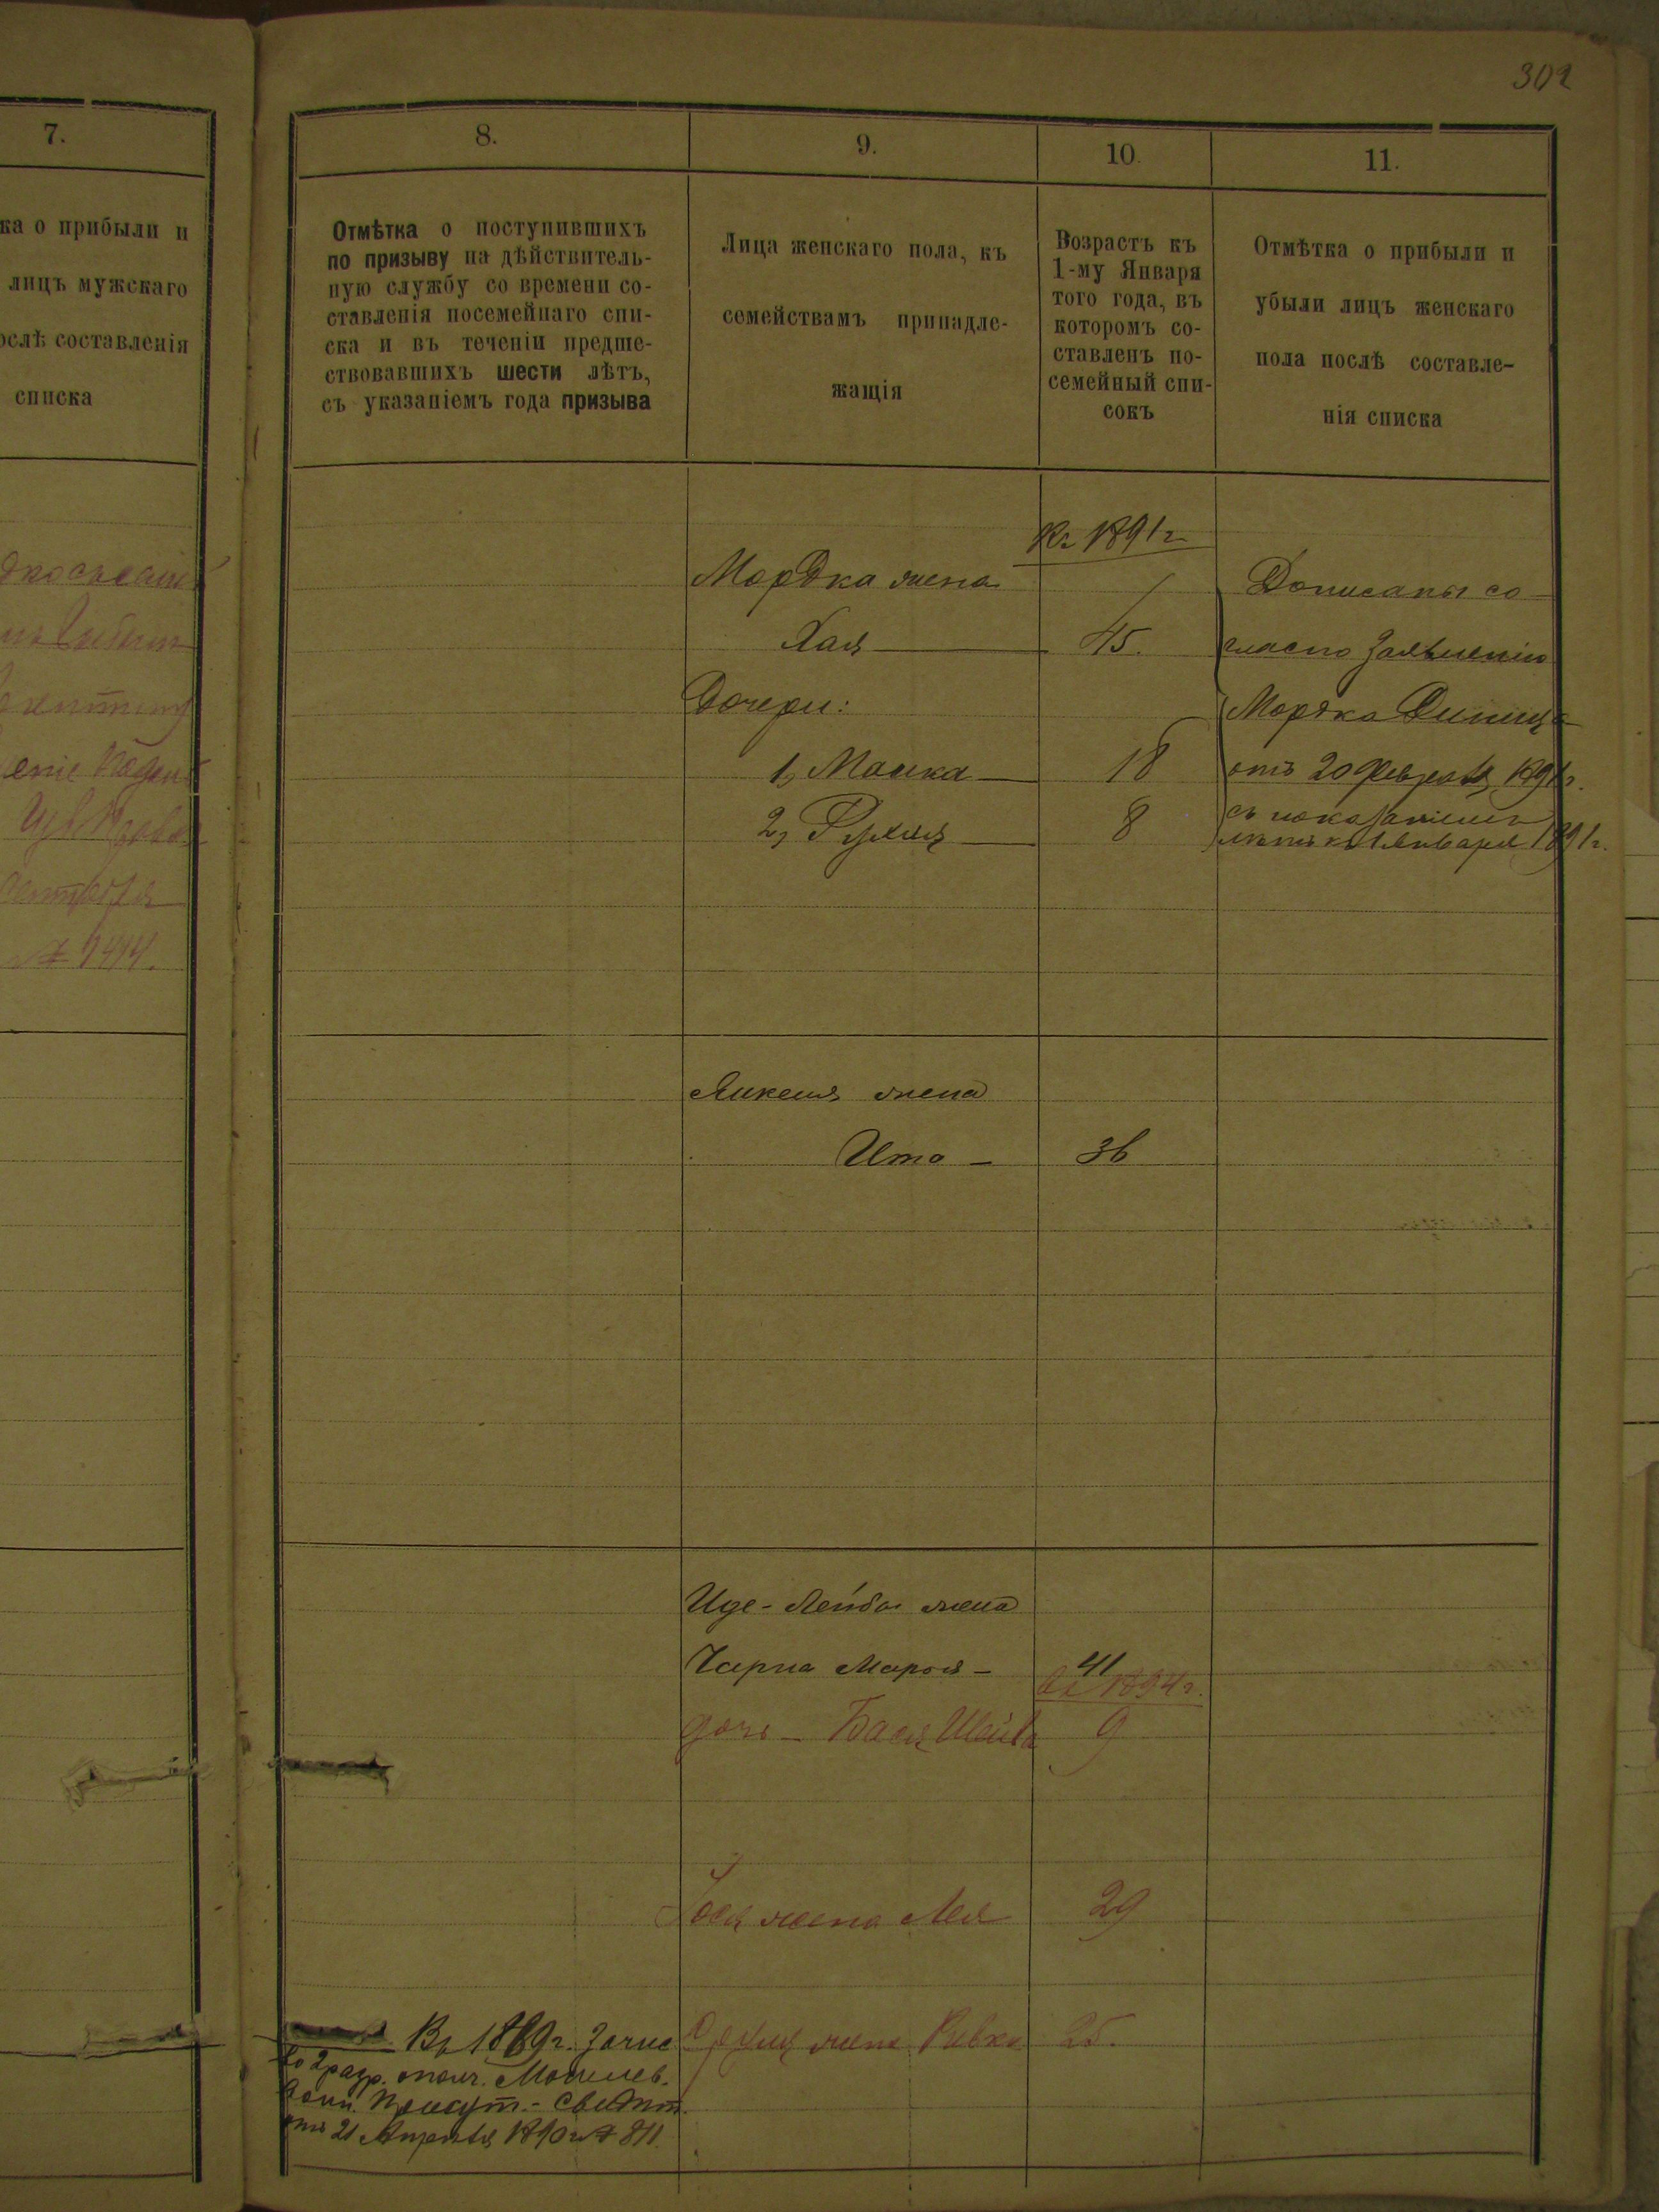 302
7.
ка о прибыли и
лицъ мужскаго
ослѣ составленія
списка
№ 7444.
8.
Отмѣтка о поступившихъ
по призыву на дѣйствитель-
ную службу со времени со-
ставленія посемейнаго спи-
ска и въ теченіи предше-
ствовавшихъ шести лѣтъ,
съ указаніемъ года призыва
9.
Лица женскаго пола, къ
семействамъ принадле-
жащія
10.
Возрастъ къ
1-му Января
того года, въ
которомъ со-
ставленъ по-
семейный спи-
сокъ
11.
Отмѣтка о прибыли и
убыли лицъ женскаго
пола послѣ составле-
нія списка
Къ 1891 г.
Мордка жена
Хая 45.
Дочери:
1, Машка 18
2, Рухля 8
Дописаны со-
гласно заявленію
Мордка
отъ 20 Февраля 1891 г.
съ показаніемъ
лѣтъ къ 1 Января 1891 г.
Янкеля жена
Ита - 36
Иде-Лейба жена
Чарна Марья - 41
Къ 1894 г.
дочь - Бася Шейва 9
жена Лея 29
жена Ривка 25.
Въ 1889 г. зачис
во 2 разр. ополч. Могилев.
Воин. Присут. - Свидѣт.
отъ 21 Апрѣля 1890 г. № 811.